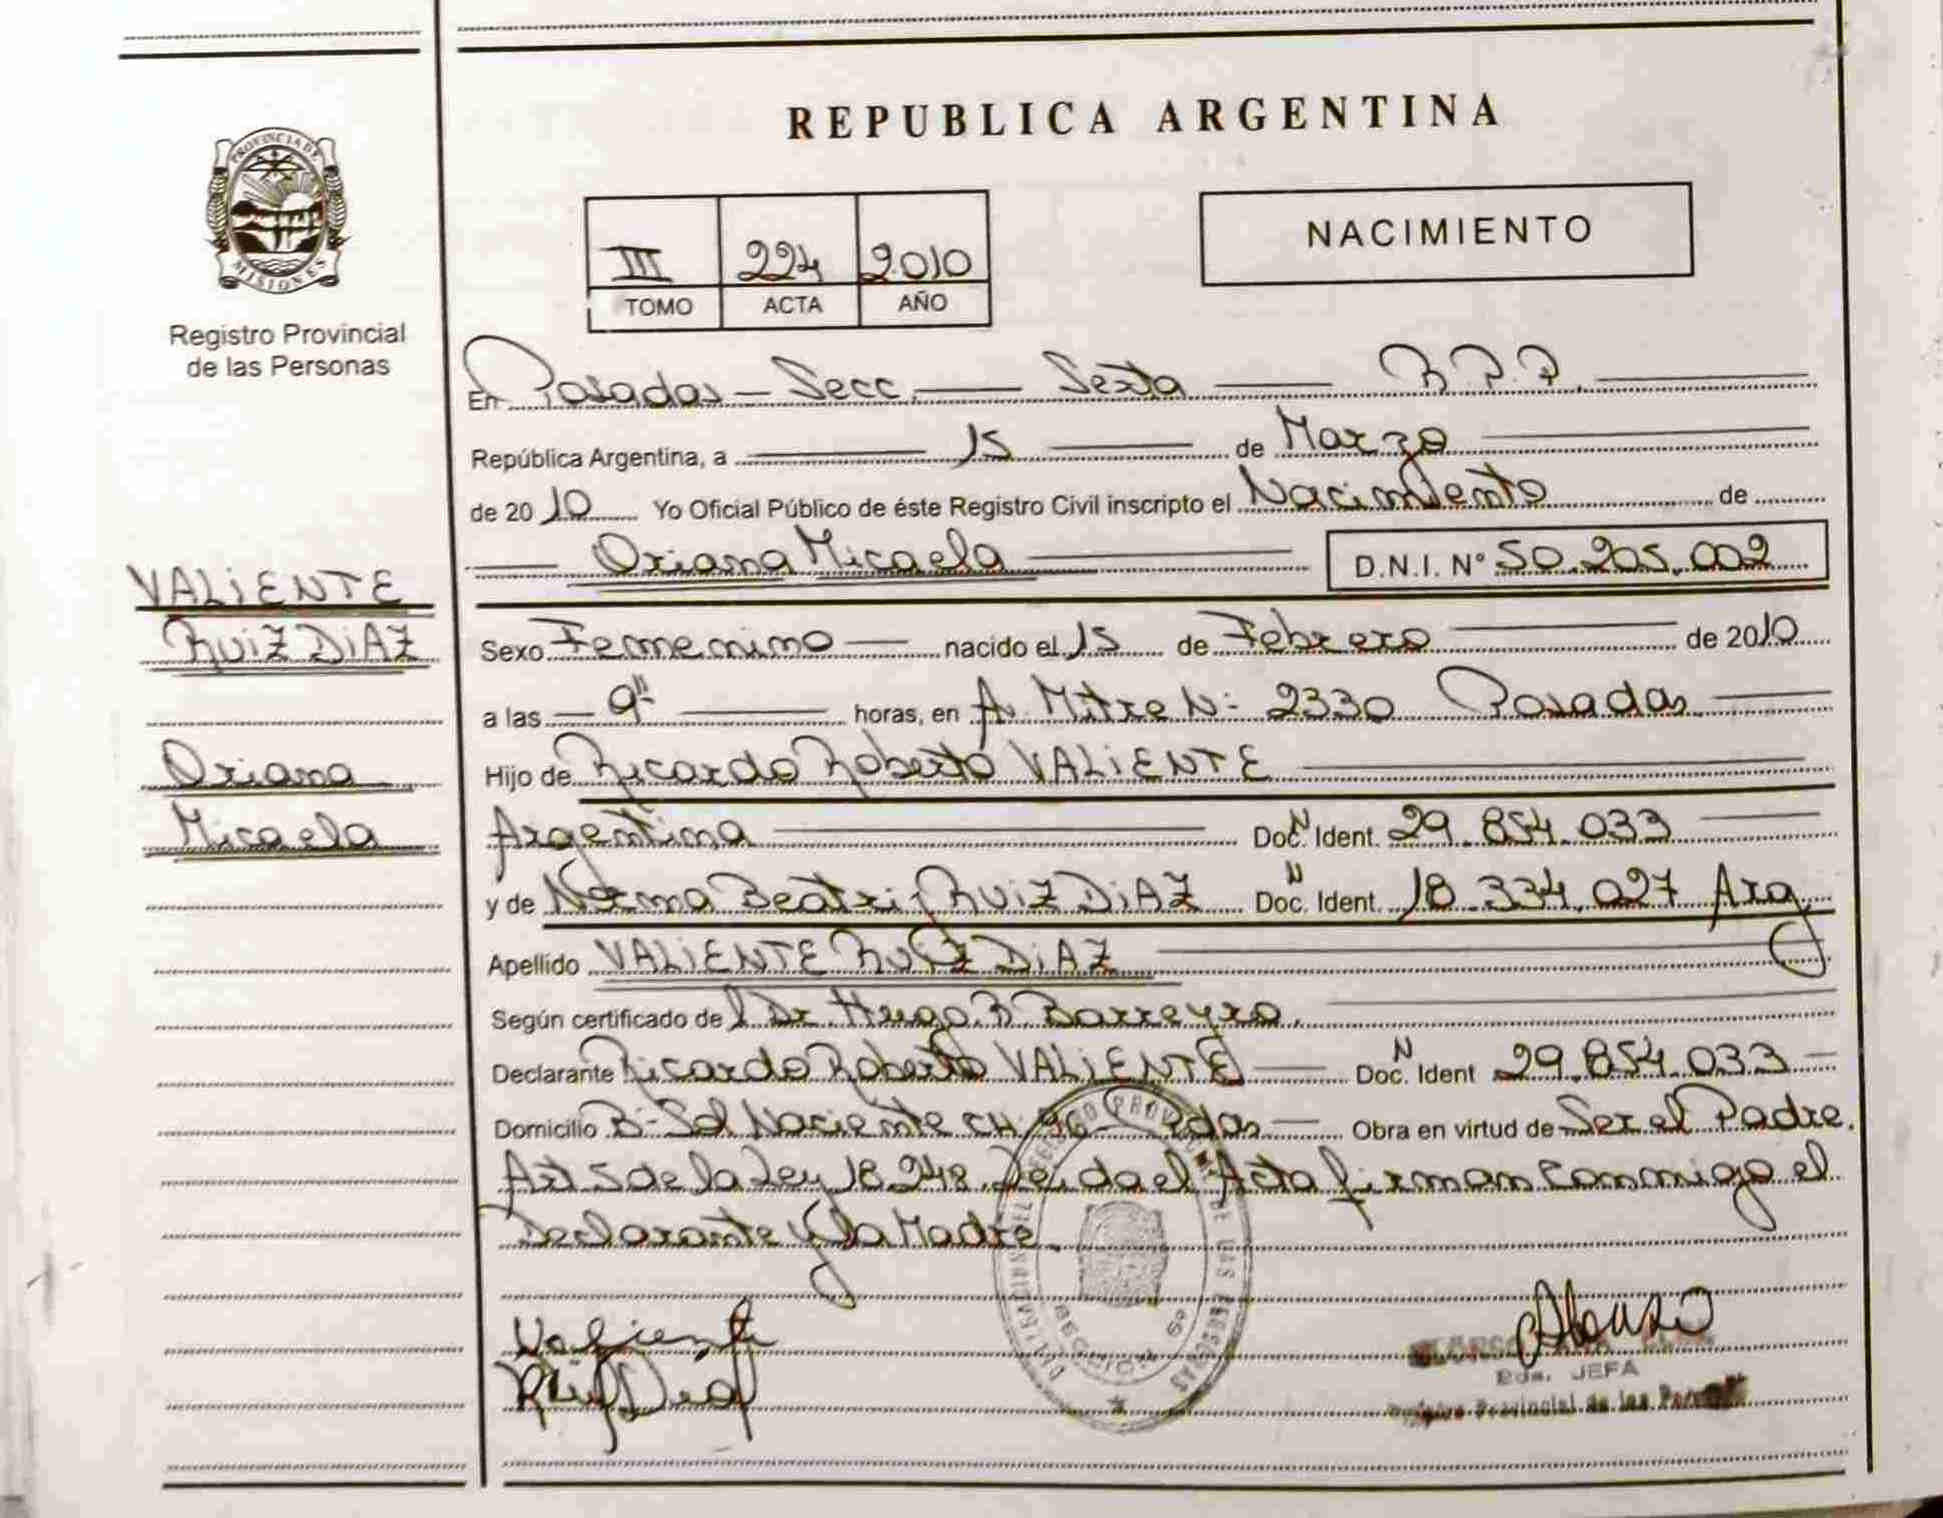 REPUBLICA ARGENTINA
PROVINCIA DE
MISIONES
Registro Provincial
de las Personas
III 224 2010
TOMO ACTA AÑO
NACIMIENTO
En Posadas - Secc. Sexta R.P.P.
República Argentina, a 15 de Marzo
de 2010 Yo Oficial Público de éste Registro Civil inscripto el Nacimiento de
Oriana Micaela D.N.I. Nº 50.205.002
VALIENTE
RUIZ DIAZ
Oriana
Micaela
Sexo Femenino nacido el 15 de Febrero de 2010
a las 9 horas, en Av. Mitre Nº 2330 Posadas
Hijo de Ricardo Roberto VALIENTE
Argentina Doc. N Ident. 29.854.033
y de Norma Beatriz RUIZ DIAZ Doc. N Ident. 18.334.027 Arg.
Apellido VALIENTE RUIZ DIAZ
Según certificado del Dr. Hugo. B Barreyro.
Declarante Ricardo Roberto VALIENTE Doc. N Ident 29.854.033
Domicilio Bº Sol Naciente CH 96 Obra en virtud de Ser el Padre.
Art 5 de la Ley 18.248. Leida el Acta firman Conmigo el
Declarante y la Madre.
Valiente
Ruiz Diaz
Alonso
JEFA
Provincial de las